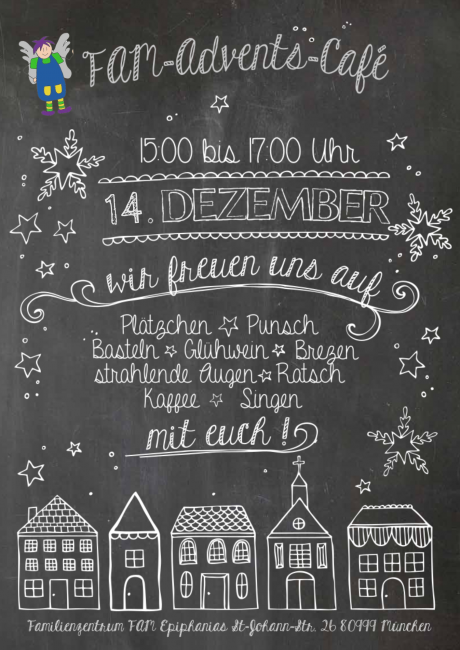 FAM-Advents-Café
15:00 bis 17:00 Uhr
14. DEZEMBER
wir freuen uns auf
Plätzchen ☆ Punsch
Basteln ☆ Glühwein ☆ Brezen
strahlende Augen ☆ Ratsch
Kaffee ☆ Singen
mit euch!
Familienzentrum FAM Epiphanias St-Johann-Str. 26 80999 München